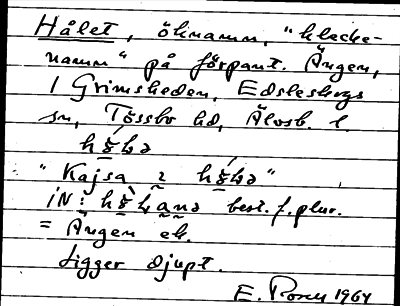 Hålet, öknamn, "klecke-
namn" på förpant. Ängen,
/ Grimsheden, Edsleskogs
sn, Tössbo hd, Älvsb. l.
"Kajsa
iN: best. f. plur.
= Ängen ek.
Ligger djupt.
E. Rosell 1964